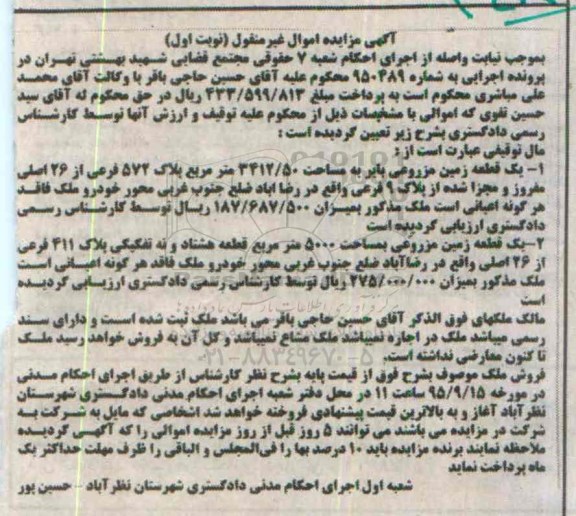 آگهی مزایده اموال غیرمنقول (نوبت اول)
بموجب نیابت واصله از اجرای احکام شعبه ۷ حقوقی مجتمع قضایی شهید بهشتی تهران در
پرونده اجرایی به شماره ۹۵۰۴۸۹ محکوم علیه آقای حسین حاجی باقر با وکالت آقای محمد
علی مباشری محکوم است به پرداخت مبلغ ۴۳۳/۵۹۹/۸۱۳ ریال در حق محکوم له آقای سید
حسین تقوی که اموالی با مشخصات ذیل از محکوم علیه توقیف و ارزش آنها توسط کارشناس
رسمی دادگستری بشرح زیر تعیین گردیده است :
مال توقیفی عبارت است از :
۱- یک قطعه زمین مزروعی بایر به مساحت ۳۴۱۲/۵۰ متر مربع پلاک ۵۷۲ فرعی از ۲۶ اصلی
مفروز و مجزا شده از پلاک ۹ فرعی واقع در رضا اباد ضلع جنوب غربی محور خودرو ملک فاقد
هر گونه اعیانی است ملک مذکور بمیزان ۱۸۷/۶۸۷/۵۰۰ ریال توسط کارشناس رسمی
دادگستری ارزیابی گردیده است
۲-یک قطعه زمین مزروعی بمساحت ۵۰۰۰ متر مربع قطعه هشتاد و نه تفکیکی پلاک ۴۱۱ فرعی
از ۲۶ اصلی واقع در رضاآباد ضلع جنوب غربی محور خودرو ملک فاقد هر گونه اعیانی است
ملک مذکور بمیزان ۲۷۵/۰۰۰/۰۰۰ ریال توسط کارشناس رسمی دادگستری ارزیابی گردیده
است
مالک ملکهای فوق الذکر آقای حسین حاجی باقر می باشد ملک ثبت شده است و دارای سند
رسمی میباشد ملک در اجاره نمیباشد ملک مشاع نمیباشد و کل آن به فروش خواهد رسید ملک
تا کنون معارضی نداشته است.
۰۲۱-۸۸۳۴۹۶۷۰-۵
فروش ملک موصوف بشرح فوق از قیمت پایه بشرح نظر کارشناس از طریق اجرای احکام مدنی
در مورخه ۹۵/۹/۱۵ ساعت ۱۱ در محل دفتر شعبه اجرای احکام مدنی دادگستری شهرستان
نظرآباد آغاز و به بالاترین قیمت پیشنهادی فروخته خواهد شد اشخاصی که مایل به شرکت به
شرکت در مزایده می باشند می توانند ۵ روز قبل از روز مزایده اموالی را که آگهی گردیده
ملاحظه نمایند برنده مزایده باید ۱۰ درصد بها را فی‌المجلس و الباقی را ظرف مهلت حداکثر یک
ماه پرداخت نماید
شعبه اول اجرای احکام مدنی دادگستری شهرستان نظرآباد - حسین پور